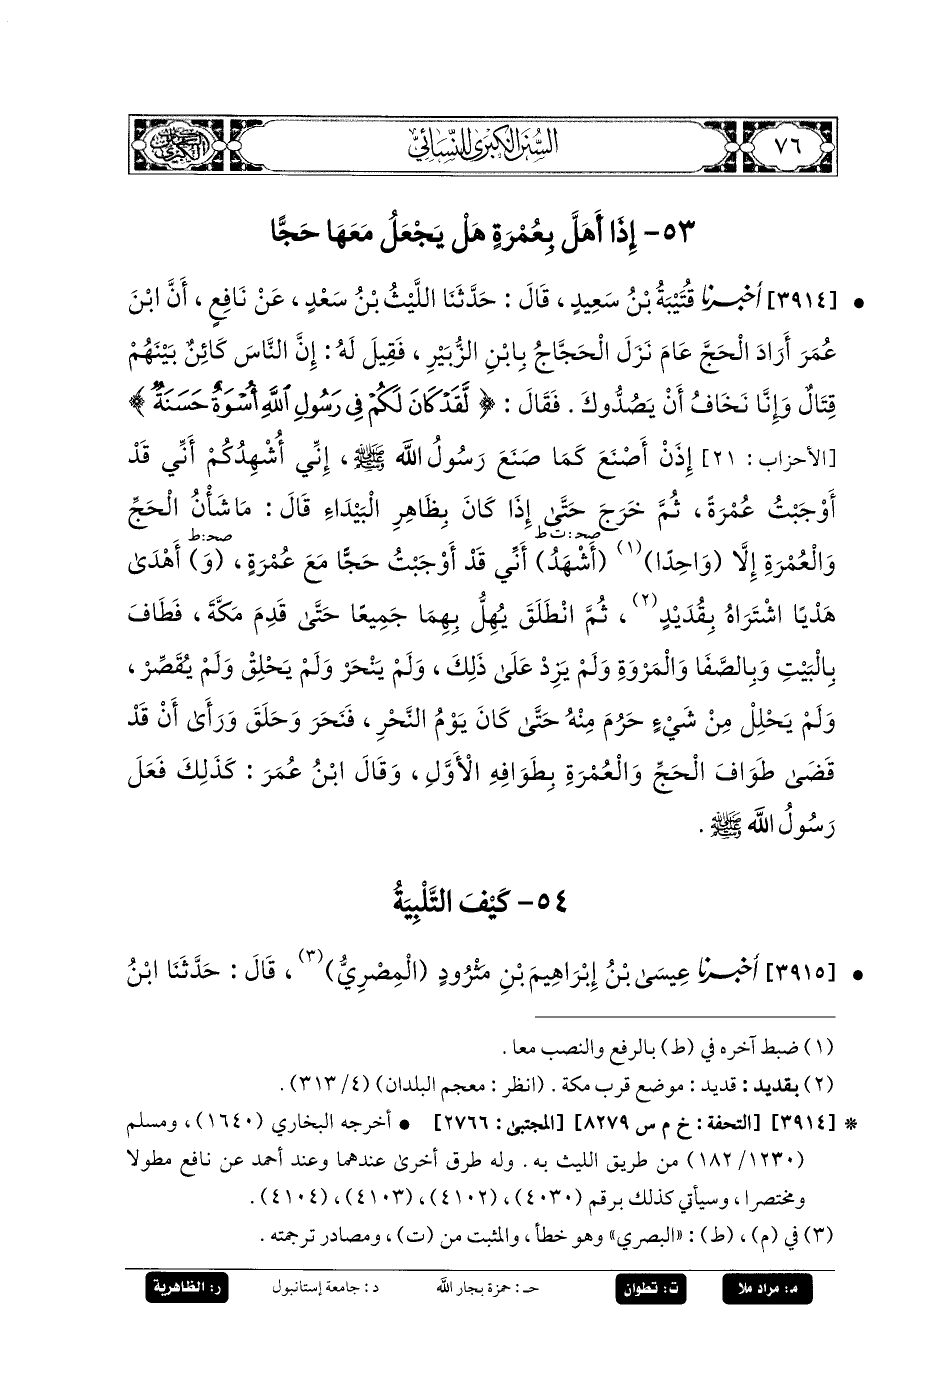 ٧٦
السنن الكبرى للنسائي
٥٣- إِذَا أَهَلَّ بِعُمْرَةٍ هَلْ يَجْعَلُ مَعَهَا حَجًّا
• [٣٩١٤] أَخْبَرَنَا قُتَيْبَةُ بْنُ سَعِيدٍ ، قَالَ : حَدَّثَنَا اللَّيْثُ بْنُ سَعْدٍ ، عَنْ نَافِعٍ ، أَنَّ ابْنَ
عُمَرَ أَرَادَ الْحَجَّ عَامَ نَزَلَ الْحَجَّاجُ بِابْنِ الزُّبَيْرِ ، فَقِيلَ لَهُ : إِنَّ النَّاسَ كَائِنٌ بَيْنَهُمْ
قِتَالٌ وَإِنَّا نَخَافُ أَنْ يَصُدُّوكَ . فَقَالَ : ﴿ لَّقَدْ كَانَ لَكُمْ فِى رَسُولِ ٱللَّهِ أُسْوَةٌ حَسَنَةٌ ﴾
[الأحزاب : ٢١] إِذَنْ أَصْنَعَ كَمَا صَنَعَ رَسُولُ اللَّه ﷺ ، إِنِّي أُشْهِدُكُمْ أَنِّي قَدْ
أَوْجَبْتُ عُمْرَةً ، ثُمَّ خَرَجَ حَتَّى إِذَا كَانَ بِظَاهِرِ الْبَيْدَاءِ قَالَ : مَا شَأْنُ الْحَجِّ
صحـ : ت ط صحـ:ط
وَالْعُمْرَةِ إِلَّا (وَاحِدًا)(١) (أَشْهَدُ) أَنِّي قَدْ أَوْجَبْتُ حَجًّا مَعَ عُمْرَةٍ ، (وَ) أَهْدَى
هَدْيًا اشْتَرَاهُ بِقُدَيْدٍ(٢) ، ثُمَّ انْطَلَقَ يُهِلُّ بِهِمَا جَمِيعًا حَتَّى قَدِمَ مَكَّةَ ، فَطَافَ
بِالْبَيْتِ وَبِالصَّفَا وَالْمَرْوَةِ وَلَمْ يَزِدْ عَلَى ذَلِكَ ، وَلَمْ يَنْحَرْ وَلَمْ يَحْلِقْ وَلَمْ يُقَصِّرْ ،
وَلَمْ يَحْلِلْ مِنْ شَيْءٍ حَرُمَ مِنْهُ حَتَّى كَانَ يَوْمُ النَّحْرِ ، فَنَحَرَ وَحَلَقَ وَرَأَى أَنْ قَدْ
قَضَى طَوَافَ الْحَجِّ وَالْعُمْرَةِ بِطَوَافِهِ الْأَوَّلِ ، وَقَالَ ابْنُ عُمَرَ : كَذَلِكَ فَعَلَ
رَسُولُ اللَّه ﷺ .
٥٤- كَيْفَ التَّلْبِيَةُ
• [٣٩١٥] أَخْبَرَنَا عِيسَى بْنُ إِبْرَاهِيمَ بْنِ مَثْرُودٍ (الْمِصْرِيُّ)(٣) ، قَالَ : حَدَّثَنَا ابْنُ
(١) ضبط آخره في (ط) بالرفع والنصب معا .
(٢) بقديد : قديد : موضع قرب مكة . (انظر : معجم البلدان) (٤/ ٣١٣) .
* [٣٩١٤] [التحفة : خ م س ٨٢٧٩] [المجتبى : ٢٧٦٦] • أخرجه البخاري (١٦٤٠) ، ومسلم
(١٢٣٠/ ١٨٢) من طريق الليث به . وله طرق أخرى عندهما وعند أحمد عن نافع مطولا
ومختصرا ، وسيأتي كذلك برقم (٤٠٣٠) ، (٤١٠٢) ، (٤١٠٣) ، (٤١٠٤) .
(٣) في (م) ، (ط) : «البصري» وهو خطأ ، والمثبت من (ت) ، ومصادر ترجمته .
م: مراد ملا ت: تطوان حـ : حمزة بجار الله د : جامعة إستانبول ر: الظاهرية